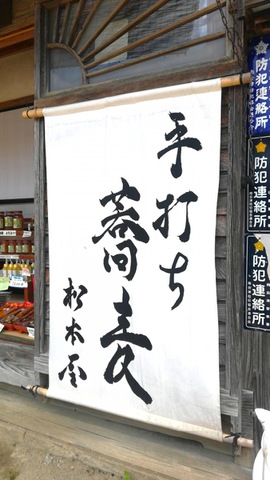 手打ち
蕎麦
松本屋
防犯連絡所
防犯連絡所
防犯連絡所